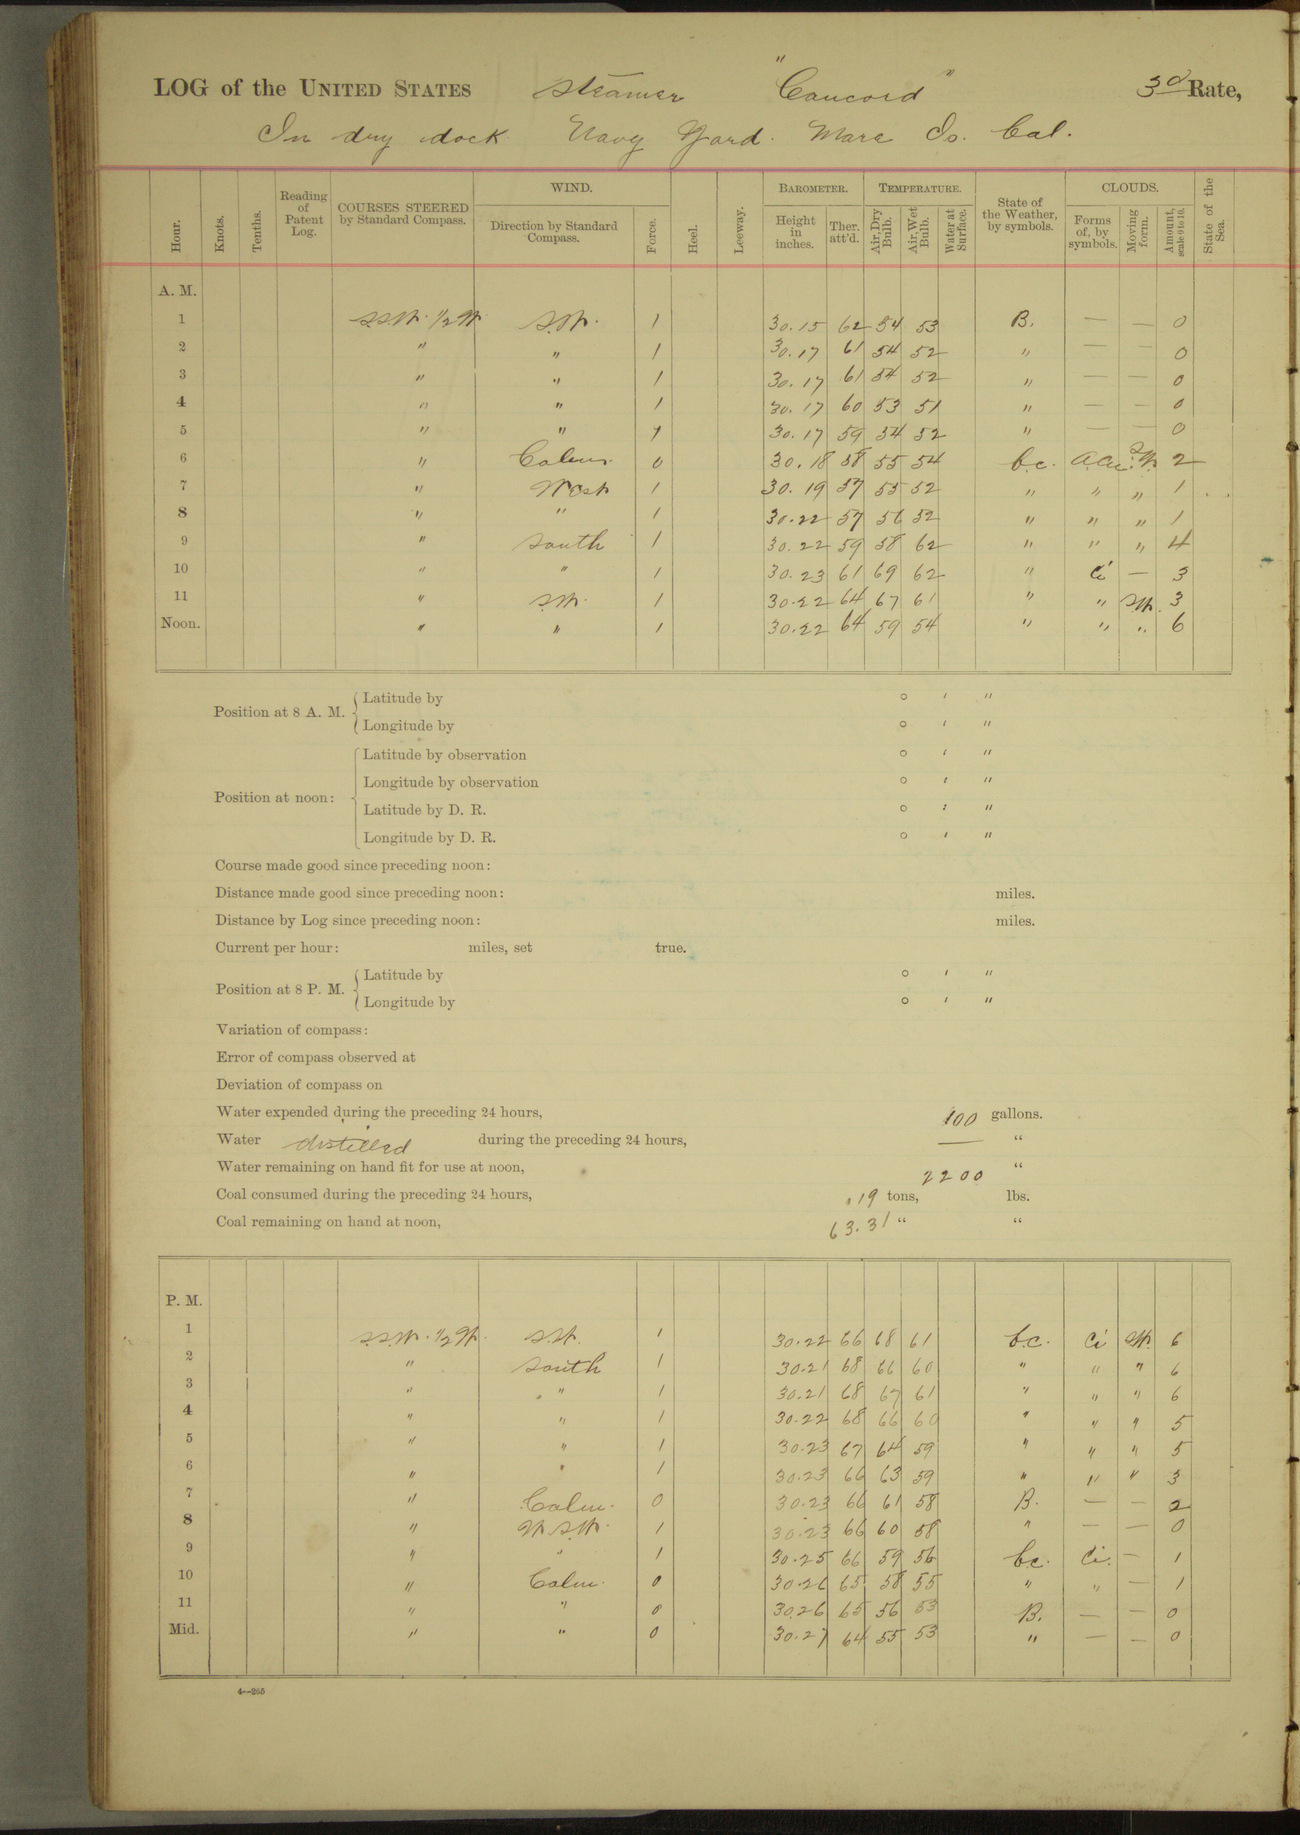 LOG of the UNITED STATES Steamer "Concord" 3d Rate,
In dry dock Navy Yard. Mare Is. Cal.
Hour. Knots. Tenths. Reading of Patent Log. COURSES STEERED by Standard Compass. WIND. Direction by Standard Compass. Force. Heel. Leeway. BAROMETER. Height in inches. Ther. att'd. TEMPERATURE. Air, Dry Bulb. Air, Wet Bulb. Water at Surface. State of the Weather, by symbols. CLOUDS. Forms of, by symbols. Moving form. Amount, scale 0 to 10. State of the Sea.
A. M.
1 S.S.W. 1/2 W. S.W. 1 30.15 62 54 53 B. — — 0
2 " " 1 30.17 61 54 52 " — — 0
3 " " 1 30.17 61 54 52 " — — 0
4 " " 1 30.17 60 53 51 " — — 0
5 " " 1 30.17 59 54 52 " — — 0
6 " Calm. 0 30.18 58 55 54 b.c. A.Cu. S.W. 2
7 " West 1 30.19 57 55 52 " " " 1
8 " " 1 30.22 57 56 52 " " " 1
9 " South 1 30.22 59 58 62 " " " 4
10 " " 1 30.23 61 69 62 " Ci — 3
11 " S.W. 1 30.22 64 67 61 " " S.W. 3
Noon. " " 1 30.22 64 59 54 " " " 6
Position at 8 A. M. Latitude by ° ' "
Longitude by ° ' "
Position at noon: Latitude by observation ° ' "
Longitude by observation ° ' "
Latitude by D. R. ° ' "
Longitude by D. R. ° ' "
Course made good since preceding noon:
Distance made good since preceding noon: miles.
Distance by Log since preceding noon: miles.
Current per hour: miles, set true.
Position at 8 P. M. Latitude by ° ' "
Longitude by ° ' "
Variation of compass:
Error of compass observed at
Deviation of compass on
Water expended during the preceding 24 hours, 100 gallons.
Water distilled during the preceding 24 hours, — "
Water remaining on hand fit for use at noon, 2200 "
Coal consumed during the preceding 24 hours, .19 tons, lbs.
Coal remaining on hand at noon, 63.31 " "
P. M.
1 S.S.W. 1/2 W. S.W. 1 30.22 66 68 61 b.c. Ci S.W. 6
2 " South 1 30.21 68 66 60 " " " 6
3 " " 1 30.21 68 67 61 " " " 6
4 " " 1 30.22 68 66 60 " " " 5
5 " " 1 30.23 67 64 59 " " " 5
6 " " 1 30.23 66 63 59 " " " 3
7 " Calm. 0 30.23 66 61 58 B. — — 2
8 " W.S.W. 1 30.23 66 60 58 " — — 0
9 " " 1 30.25 66 59 56 b.c. Ci. — 1
10 " Calm. 0 30.26 65 58 55 " " — 1
11 " " 0 30.26 65 56 53 B. — — 0
Mid. " " 0 30.27 64 55 53 " — — 0
4—265